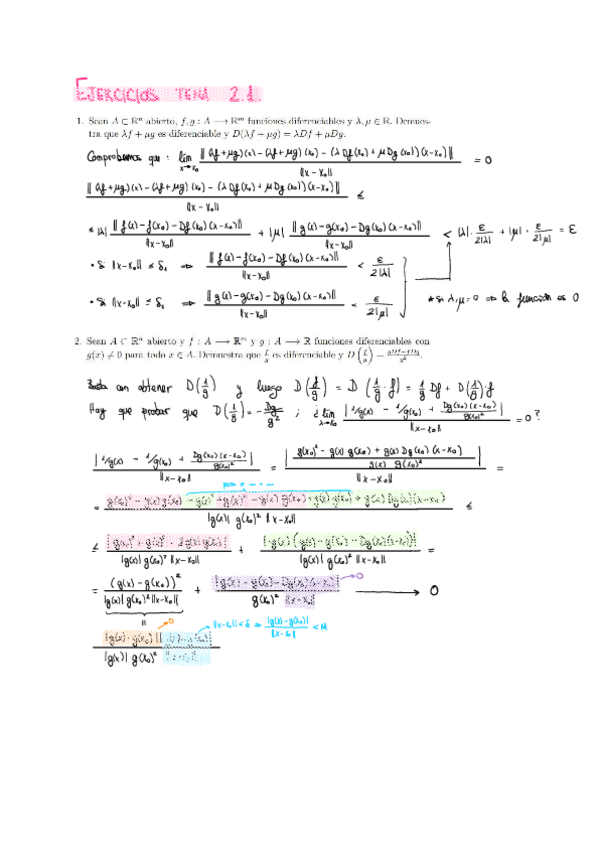 EJERCICIOS TEMA 2.1.
1. Sean A ⊂ ℝⁿ abierto, f, g : A ⟶ ℝᵐ funciones diferenciables y λ, μ ∈ ℝ. Demues-
tra que λf + μg es diferenciable y D(λf + μg) = λDf + μDg.
Comprobemos que : lim x→x₀ ‖(λf+μg)(x) − (λf+μg)(x₀) − (λDf(x₀) + μDg(x₀))(x−x₀)‖ / ‖x−x₀‖ = 0
‖(λf+μg)(x) − (λf+μg)(x₀) − (λDf(x₀) + μDg(x₀))(x−x₀)‖ / ‖x−x₀‖ ≤
≤ |λ| ‖f(x)−f(x₀)−Df(x₀)(x−x₀)‖ / ‖x−x₀‖ + |μ| ‖g(x)−g(x₀)−Dg(x₀)(x−x₀)‖ / ‖x−x₀‖ < |λ|· ε/2|λ| + |μ|· ε/2|μ| = ε
• Si ‖x−x₀‖ ≤ δ₁ ⇒ ‖f(x)−f(x₀)−Df(x₀)(x−x₀)‖ / ‖x−x₀‖ < ε/2|λ|
• Si ‖x−x₀‖ ≤ δ₂ ⇒ ‖g(x)−g(x₀)−Dg(x₀)(x−x₀)‖ / ‖x−x₀‖ < ε/2|μ| * si λ,μ=0 ⇒ la función es 0
2. Sean A ⊂ ℝⁿ abierto y f : A ⟶ ℝᵐ y g : A ⟶ ℝ funciones diferenciables con
g(x) ≠ 0 para todo x ∈ A. Demuestra que f/g es diferenciable y D(f/g) = (gDf−fDg)/g².
Basta con obtener D(1/g) y luego D(f/g) = D(1/g · f) = 1/g Df + D(1/g)·f
Hay que probar que D(1/g) = −Dg/g² ; ¿ lim x→x₀ |1/g(x) − 1/g(x₀) + Dg(x₀)(x−x₀)/g(x₀)²| / ‖x−x₀‖ = 0 ?
|1/g(x) − 1/g(x₀) + Dg(x₀)(x−x₀)/g(x₀)²| / ‖x−x₀‖ = |(g(x₀)² − g(x) g(x₀) + g(x) Dg(x₀)(x−x₀)) / (g(x) g(x₀)²)| / ‖x−x₀‖ =
= |g(x₀)² − g(x)g(x₀) − g(x)² + g(x)² − g(x)g(x₀) + g(x)g(x₀) + g(x)Dg(x₀)(x−x₀)| / |g(x)| g(x₀)² ‖x−x₀‖ ≤
≤ |g(x₀)² + g(x)² − 2g(x)g(x₀)| / |g(x)| g(x₀)² ‖x−x₀‖ + |−g(x)(g(x) − g(x₀) − Dg(x₀)(x−x₀))| / |g(x)| g(x₀)² ‖x−x₀‖ =
= (g(x) − g(x₀))² / |g(x)| g(x₀)² ‖x−x₀‖ + |g(x) − g(x₀) − Dg(x₀)(x−x₀)| / g(x₀)² ‖x−x₀‖ ⟶ 0
→0
=
|g(x)−g(x₀)| |g(x)−g(x₀)| / |g(x)| g(x₀)² ‖x−x₀‖
→0
‖x−x₀‖ < δ ⇒ |g(x)−g(x₀)| / ‖x−x₀‖ < M